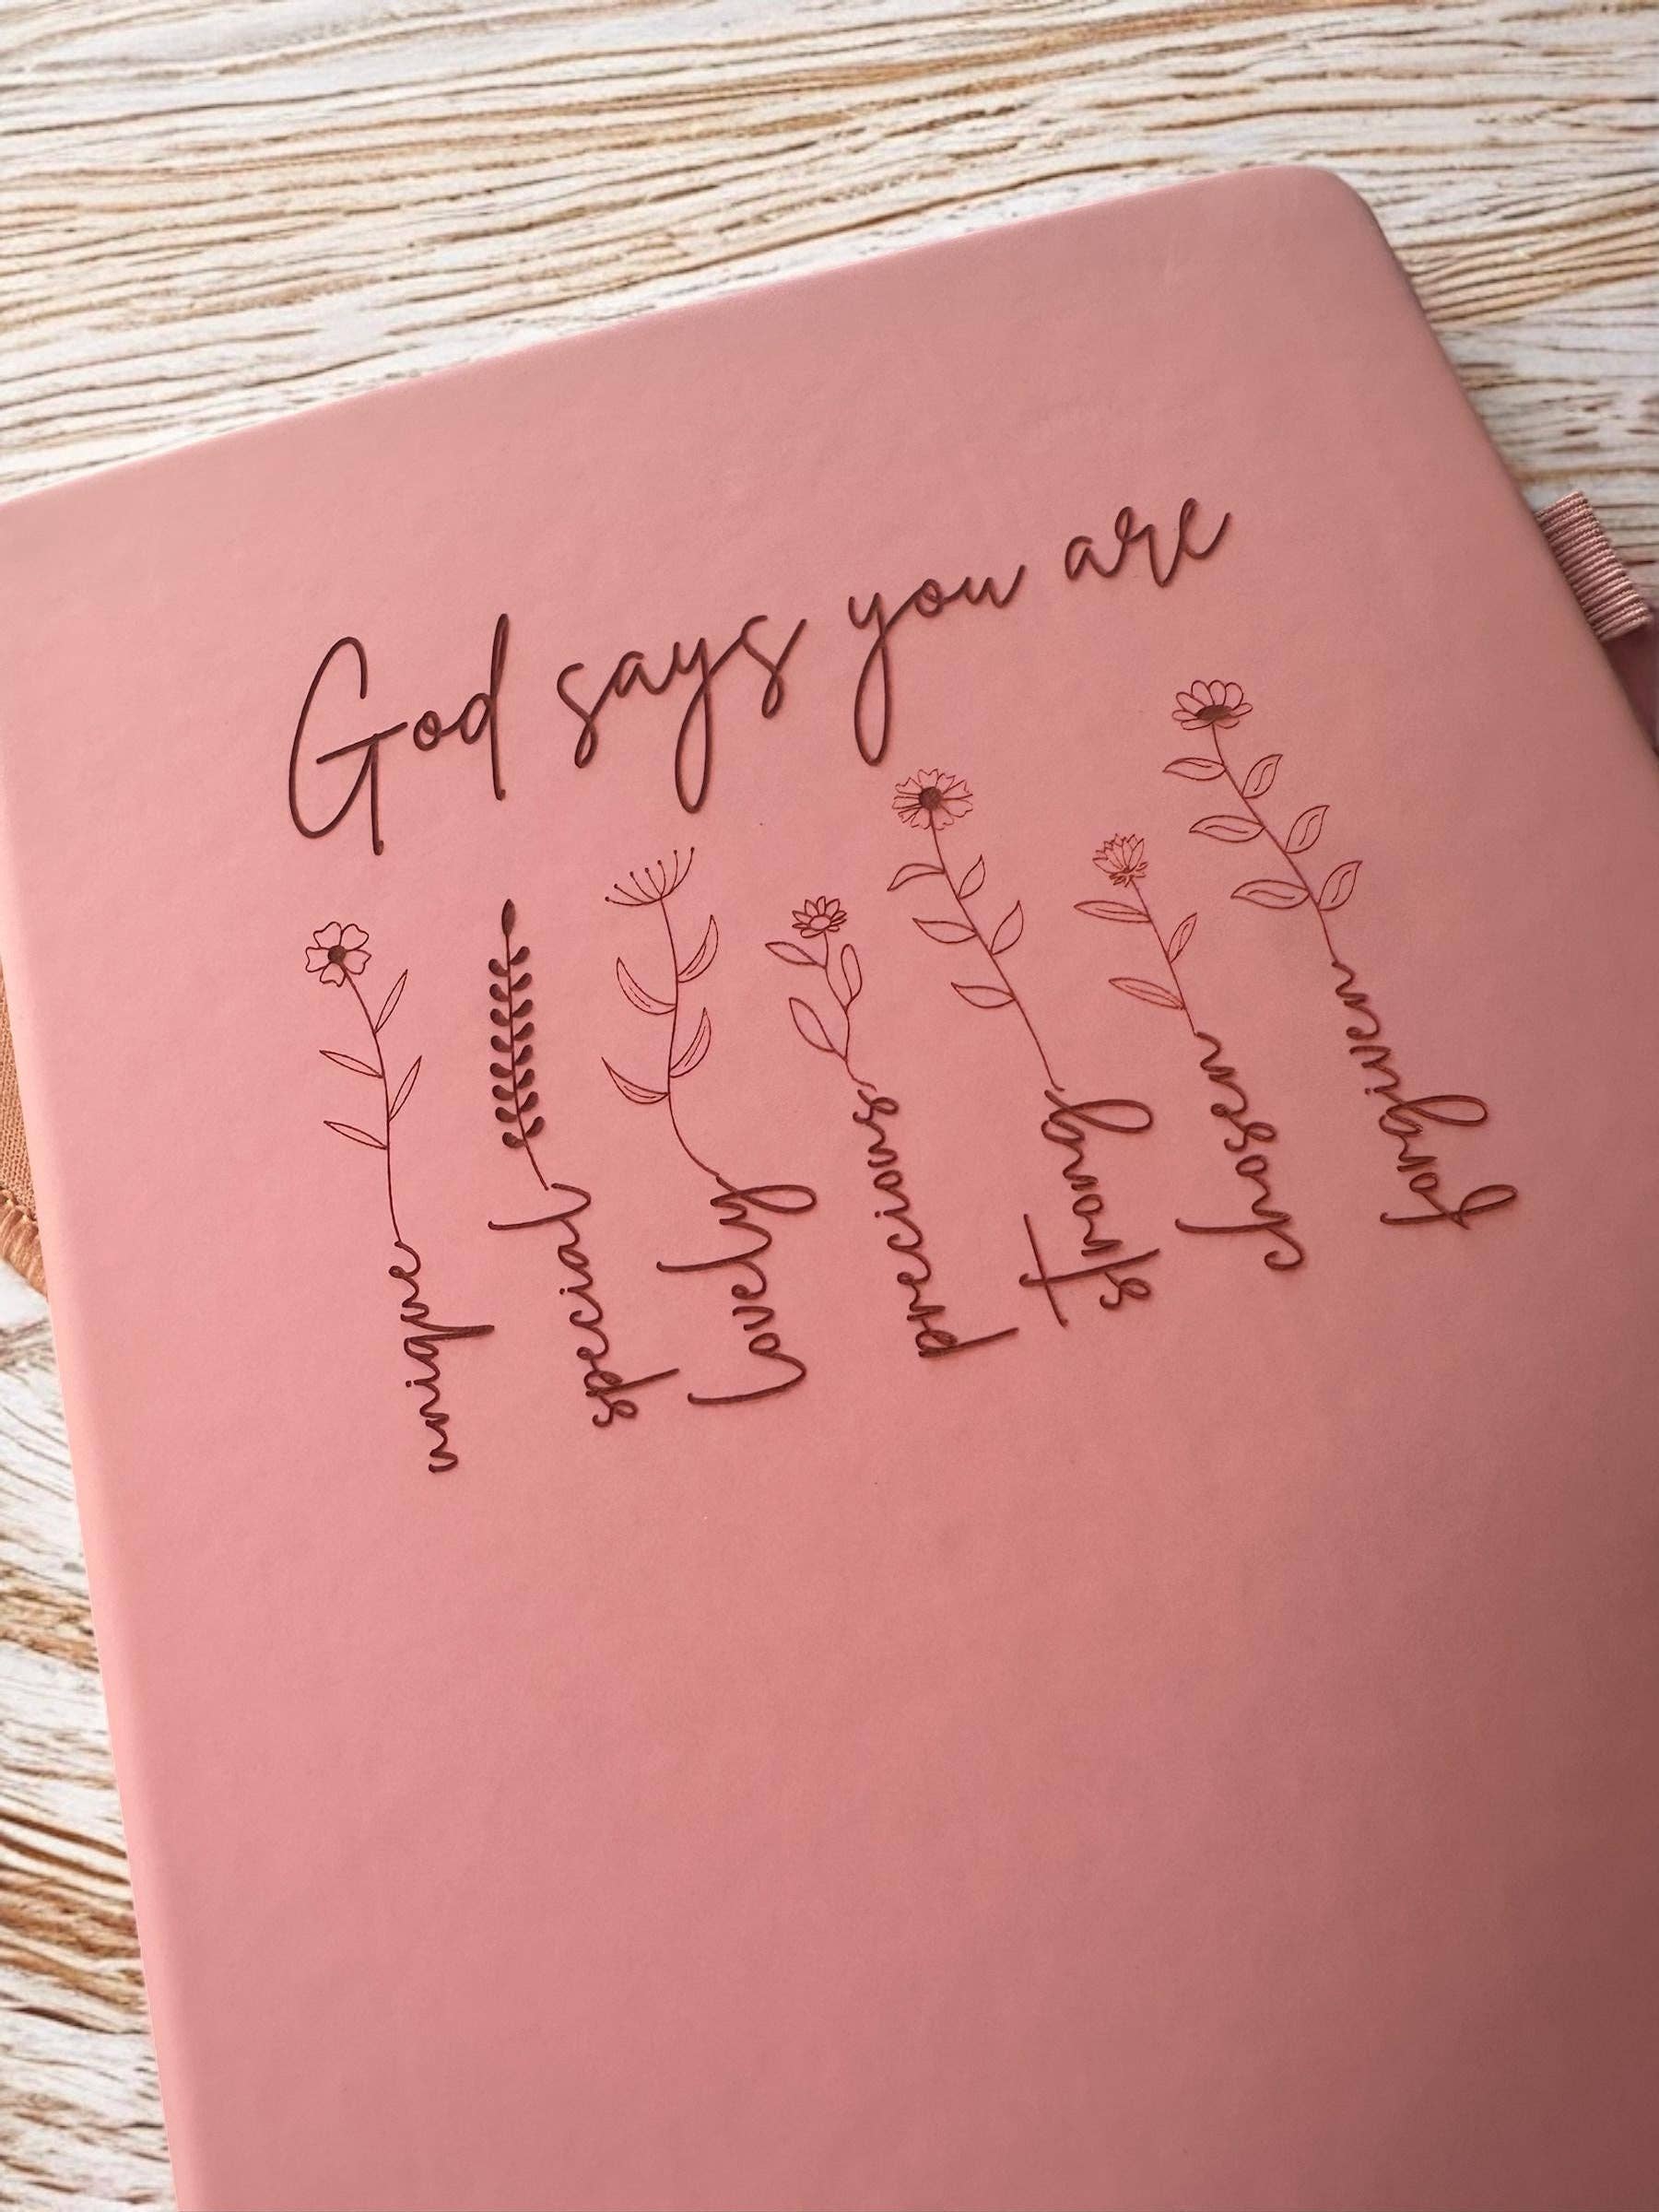 God says you are
unique
special
lovely
precious
strong
chosen
forgiven